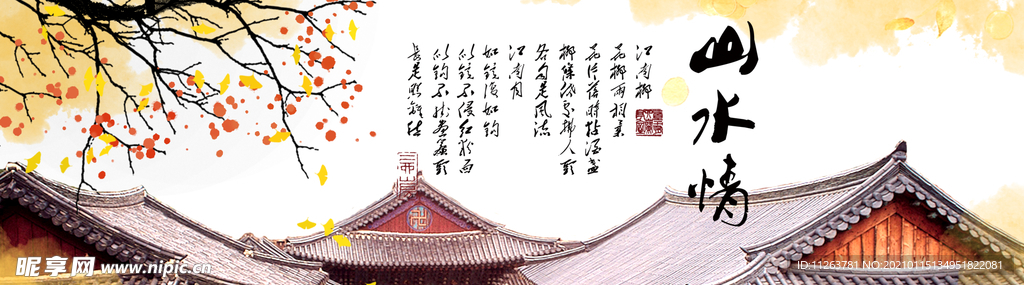 山水情
江南柳
花柳两相柔
花片落时黏酒盏
柳条低处拂人头
各自是风流
江南月
如镜复如钩
似镜不侵红粉面
似钩不挂画帘头
长是照离愁
昵享网 www.nipic.cn
ID:11263781 NO:20210115134951822081